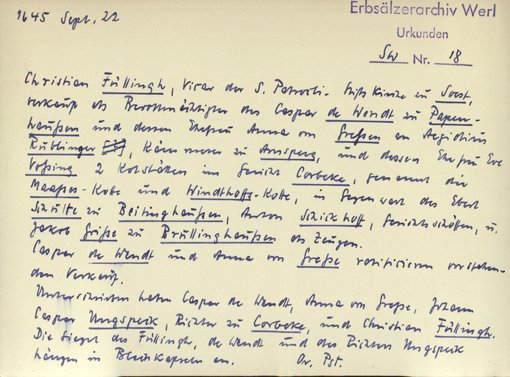 1645 Sept. 22
Erbsälzerarchiv Werl
Urkunden
SW Nr. 18
Christian Füllingh, Vicar der S. Patrocli-Stiftskirche zu Soest,
verkauft als Bevollmächtigter des Caspar de Wendt zu Papen-
haußen und dessen Ehefrau Anna von Greßen an Aegidius
Rüblinger, Kämmerer zu Arnsperg, und dessen Ehefrau Eva
Voßing 2 Kotstätten im Gericht Corbeke, genannt die
Maapen-Kotte und Windthoffs-Kotte, in Gegenwart des Ebert
Schulte zu Beitinghaußen, Anton Schickhoff, Gerichtsschöffen, u.
Jakob Griße zu Brüllinghaußen als Zeugen.
Caspar de Wendt und Anna von Greße ratificieren vorstehen-
den Verkauf.
Unterschrieben haben Caspar de Wendt, Anna von Greße, Johann
Caspar Ungspeck, Richter zu Corbeke, und Christian Füllingh.
Die Siegel des Füllingh, de Wendt und des Richters Ungspeck
hängen in Blechkapseln an. Or. Pgt.